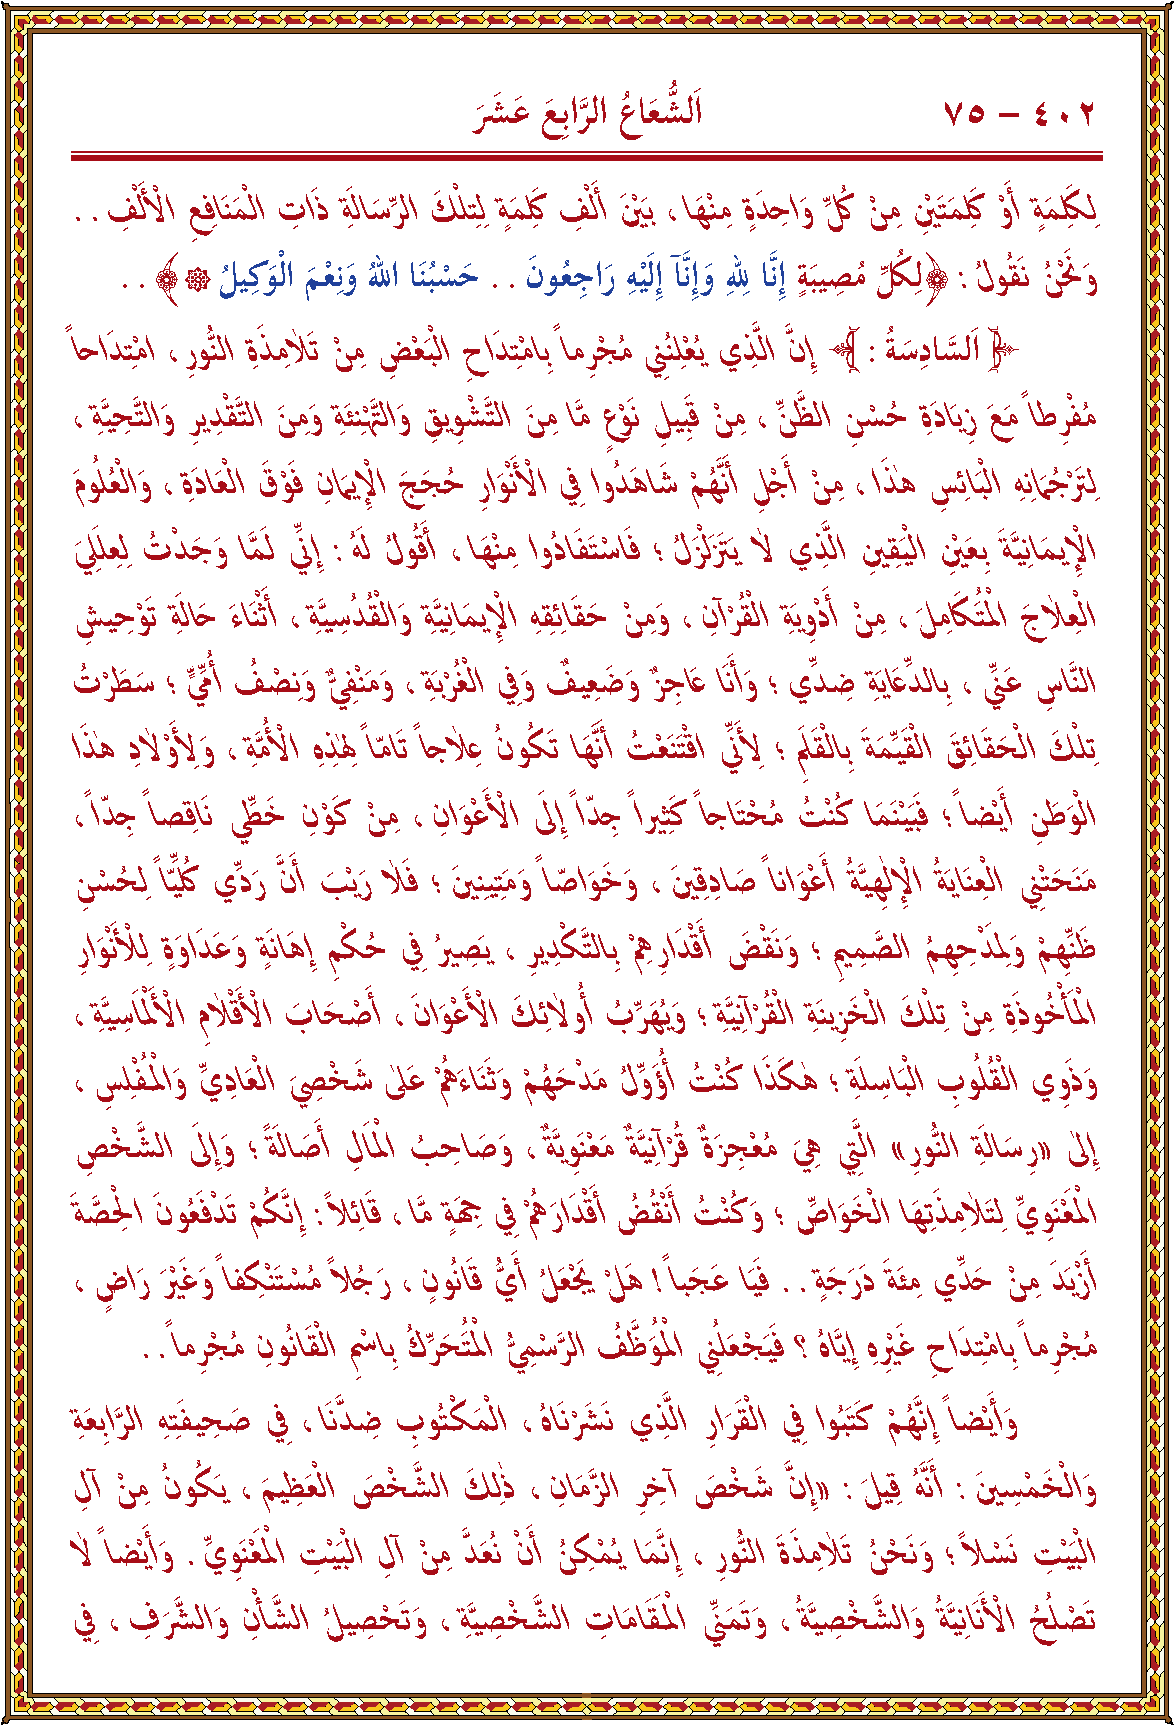 ٤٠٢ – ٧٥
اَلشُّعَاعُ الرَّابِعَ عَشَرَ
لِكَلِمَةٍ أَوْ كَلِمَتَيْنِ مِنْ كُلِّ وَاحِدَةٍ مِنْهَا ، بَيْنَ أَلْفِ كَلِمَةٍ لِتِلْكَ الرِّسَالَةِ ذَاتِ الْمَنَافِعِ الْأَلْفِ . .
وَنَحْنُ نَقُولُ : ﴿لِكُلِّ مُصِيبَةٍ إِنَّا لِلّٰهِ وَإِنَّآ إِلَيْهِ رَاجِعُونَ . . حَسْبُنَا اللّٰهُ وَنِعْمَ الْوَكِيلُ ۞﴾ . .
﴿ اَلسَّادِسَةُ : ﴾ إِنَّ الَّذِي يُعْلِنُنِي مُجْرِماً بِامْتِدَاحِ الْبَعْضِ مِنْ تَلَامِذَةِ النُّورِ ، امْتِدَاحاً
مُفْرِطاً مَعَ زِيَادَةِ حُسْنِ الظَّنِّ ، مِنْ قَبِيلِ نَوْعٍ مَّا مِنَ التَّشْوِيقِ وَالتَّهْنِئَةِ وَمِنَ التَّقْدِيرِ وَالتَّحِيَّةِ ،
لِتَرْجُمَانِهِ الْبَائِسِ هٰذَا ، مِنْ أَجْلِ أَنَّهُمْ شَاهَدُوا فِي الْأَنْوَارِ حُجَجَ الْإِيمَانِ فَوْقَ الْعَادَةِ ، وَالْعُلُومَ
الْإِيمَانِيَّةَ بِعَيْنِ الْيَقِينِ الَّذِي لَا يَتَزَلْزَلُ ؛ فَاسْتَفَادُوا مِنْهَا ، أَقُولُ لَهُ : إِنِّي لَمَّا وَجَدْتُ لِعِلَلِيَ
الْعِلَاجَ الْمُتَكَامِلَ ، مِنْ أَدْوِيَةِ الْقُرْآنِ ، وَمِنْ حَقَائِقِهِ الْإِيمَانِيَّةِ وَالْقُدْسِيَّةِ ، أَثْنَاءَ حَالَةِ تَوْحِيشِ
النَّاسِ عَنِّي ، بِالدِّعَايَةِ ضِدِّي ؛ وَأَنَا عَاجِزٌ وَضَعِيفٌ وَفِي الْغُرْبَةِ ، وَمَنْفِيٌّ وَنِصْفُ أُمِّيٍّ ؛ سَطَرْتُ
تِلْكَ الْحَقَائِقَ الْقَيِّمَةَ بِالْقَلَمِ ؛ لِأَنِّي اقْتَنَعْتُ أَنَّهَا تَكُونُ عِلَاجاً تَامّاً لِهٰذِهِ الْأُمَّةِ ، وَلِأَوْلَادِ هٰذَا
الْوَطَنِ أَيْضاً ؛ فَبَيْنَمَا كُنْتُ مُحْتَاجاً كَثِيراً جِدّاً إِلَى الْأَعْوَانِ ، مِنْ كَوْنِ خَطِّي نَاقِصاً جِدّاً ،
مَنَحَتْنِي الْعِنَايَةُ الْإِلٰهِيَّةُ أَعْوَاناً صَادِقِينَ ، وَخَوَاصّاً وَمَتِينِينَ ؛ فَلَا رَيْبَ أَنَّ رَدِّي كُلِّيّاً لِحُسْنِ
ظَنِّهِمْ وَلِمَدْحِهِمُ الصَّمِيمِ ؛ وَنَقْضَ أَقْدَارِهِمْ بِالتَّكْدِيرِ ، يَصِيرُ فِي حُكْمِ إِهَانَةٍ وَعَدَاوَةٍ لِلْأَنْوَارِ
الْمَأْخُوذَةِ مِنْ تِلْكَ الْخَزِينَةِ الْقُرْآنِيَّةِ ؛ وَيُهَرِّبُ أُولَائِكَ الْأَعْوَانَ ، أَصْحَابَ الْأَقْلَامِ الْأَلْمَاسِيَّةِ ،
وَذَوِي الْقُلُوبِ الْبَاسِلَةِ ؛ هٰكَذَا كُنْتُ أُؤَوِّلُ مَدْحَهُمْ وَثَنَاءَهُمْ عَلَىٰ شَخْصِيَ الْعَادِيِّ وَالْمُفْلِسِ ،
إِلَىٰ «رِسَالَةِ النُّورِ» الَّتِي هِيَ مُعْجِزَةٌ قُرْآنِيَّةٌ مَعْنَوِيَّةٌ ، وَصَاحِبُ الْمَالِ أَصَالَةً ؛ وَإِلَى الشَّخْصِ
الْمَعْنَوِيِّ لِتَلَامِذَتِهَا الْخَوَاصِّ ؛ وَكُنْتُ أَنْقُضُ أَقْدَارَهُمْ فِي جِهَةٍ مَّا ، قَائِلاً : إِنَّكُمْ تَدْفَعُونَ الْحِصَّةَ
أَزْيَدَ مِنْ حَدِّي مِئَةَ دَرَجَةٍ . . فَيَا عَجَباً ! هَلْ يَجْعَلُ أَيُّ قَانُونٍ ، رَجُلاً مُسْتَنْكِفاً وَغَيْرَ رَاضٍ ،
مُجْرِماً بِامْتِدَاحِ غَيْرِهِ إِيَّاهُ ؟ فَيَجْعَلُنِي الْمُوَظَّفُ الرَّسْمِيُّ الْمُتَحَرِّكُ بِاسْمِ الْقَانُونِ مُجْرِماً . .
وَأَيْضاً إِنَّهُمْ كَتَبُوا فِي الْقَرَارِ الَّذِي نَشَرْنَاهُ ، الْمَكْتُوبِ ضِدَّنَا ، فِي صَحِيفَتِهِ الرَّابِعَةِ
وَالْخَمْسِينَ : أَنَّهُ قِيلَ : «إِنَّ شَخْصَ آخِرِ الزَّمَانِ ، ذٰلِكَ الشَّخْصَ الْعَظِيمَ ، يَكُونُ مِنْ آلِ
الْبَيْتِ نَسْلاً ؛ وَنَحْنُ تَلَامِذَةَ النُّورِ ، إِنَّمَا يُمْكِنُ أَنْ نُعَدَّ مِنْ آلِ الْبَيْتِ الْمَعْنَوِيِّ . وَأَيْضاً لَا
تَصْلُحُ الْأَنَانِيَّةُ وَالشَّخْصِيَّةُ ، وَتَمَنِّي الْمَقَامَاتِ الشَّخْصِيَّةِ ، وَتَحْصِيلُ الشَّأْنِ وَالشَّرَفِ ، فِي